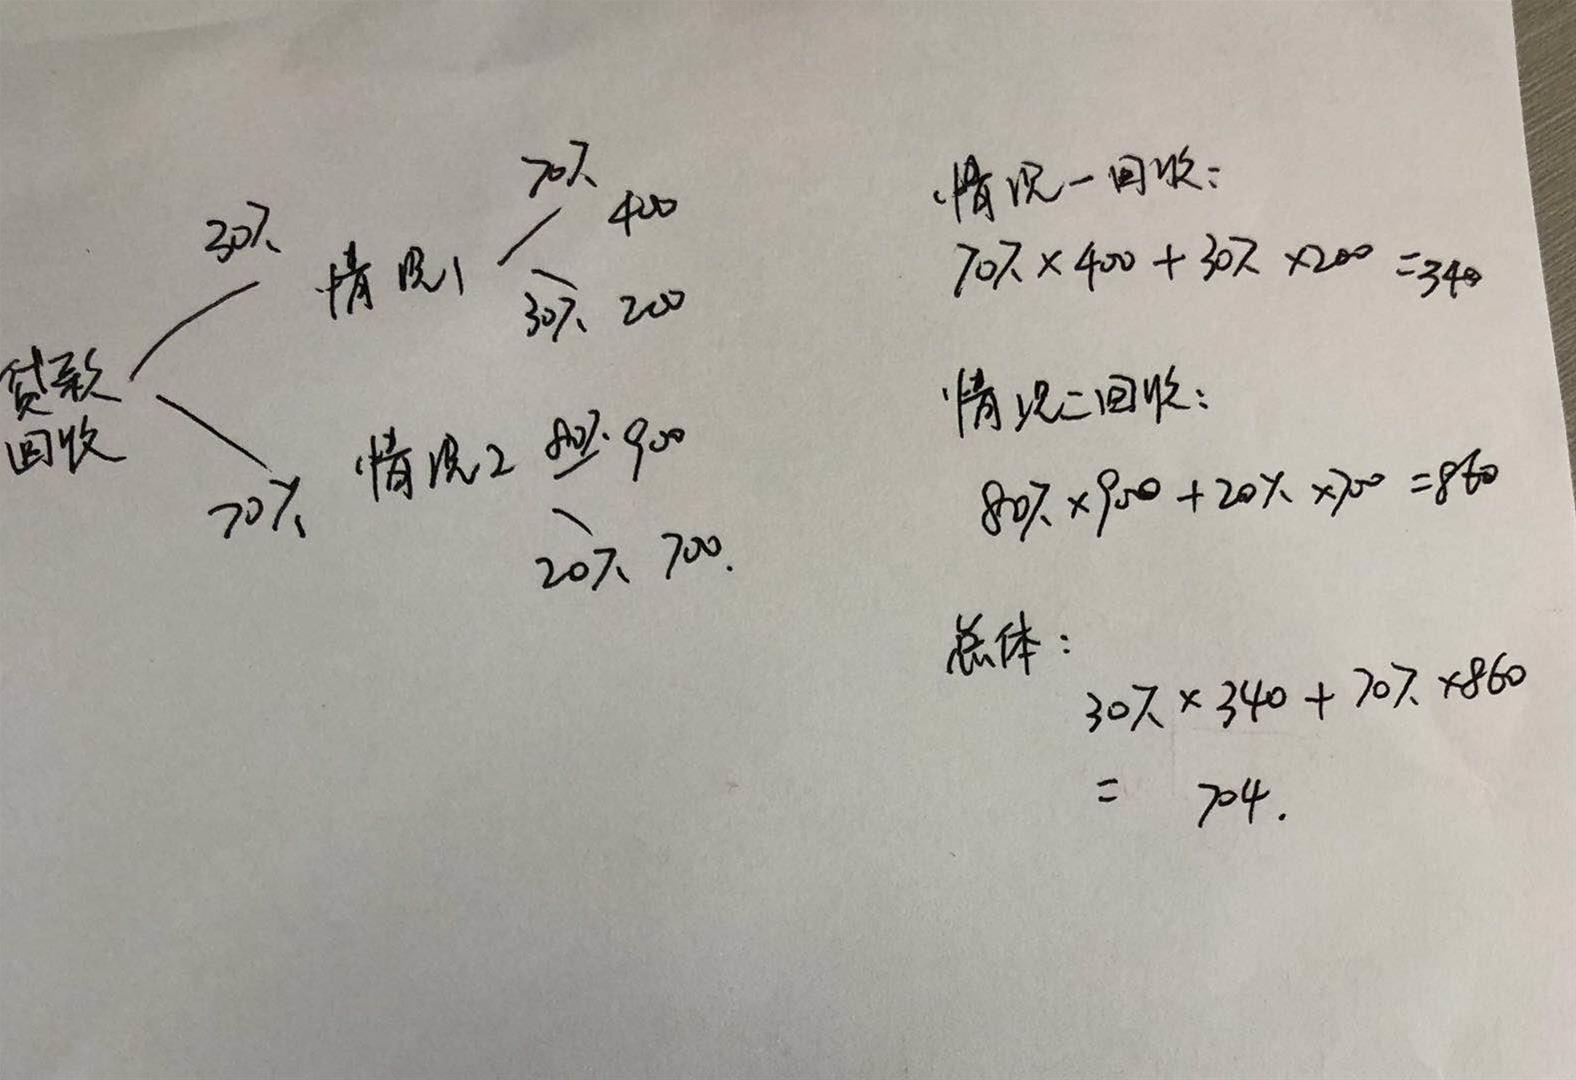 贷款
回收
30%
情况1
70%
400
30% 200
70%
情况2
80% 900
20% 700.
情况一回收:
70%×400+30%×200=340
情况二回收:
80%×900+20%×700=860
总体:
30%×340+70%×860
= 704.